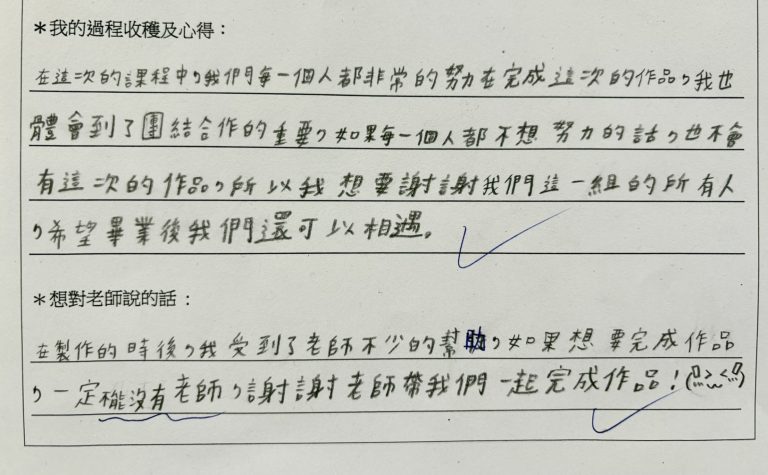 ＊我的過程收穫及心得：
在這次的課程中，我們每一個人都非常的努力在完成這次的作品，我也
體會到了團結合作的重要，如果每一個人都不想努力的話，也不會
有這次的作品，所以我想要謝謝我們這一組的所有人
，希望畢業後我們還可以相遇。
＊想對老師說的話：
在製作的時後，我受到了老師不少的幫助，如果想要完成作品
，一定不能沒有老師，謝謝老師帶我們一起完成作品！